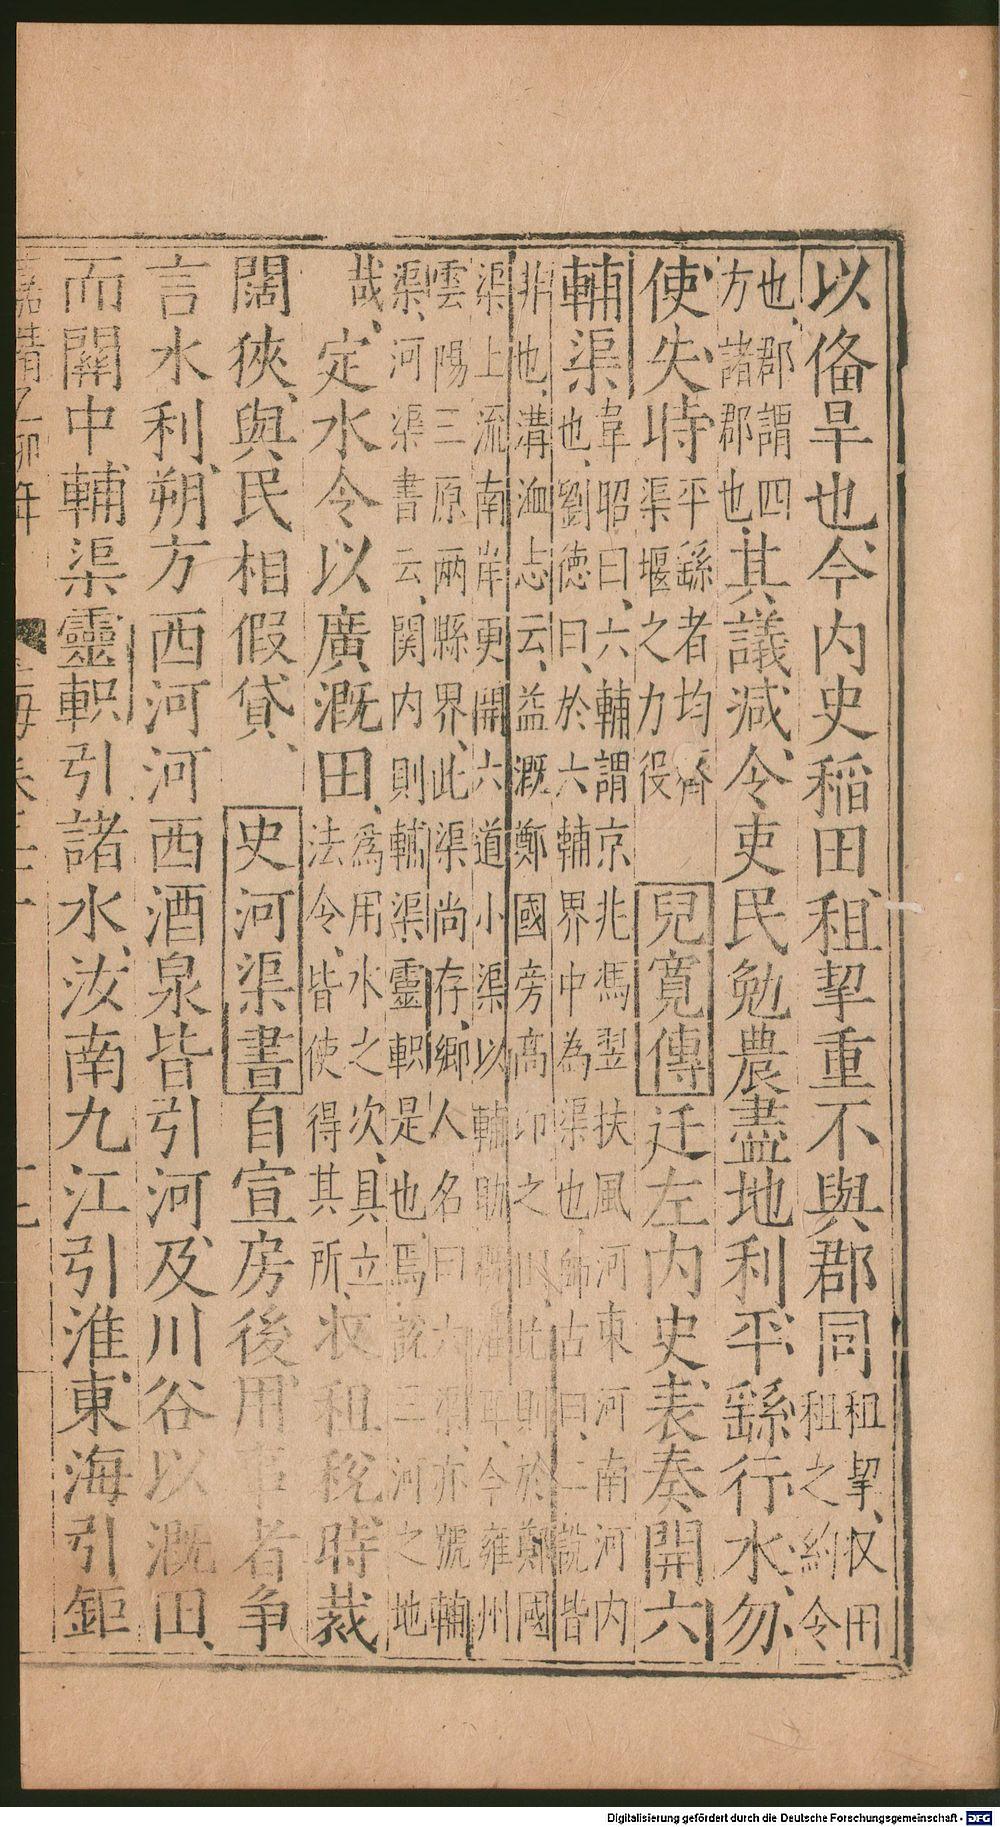 以俻旱也今内史稲田租挈重不與郡同租挈収田
租之約令
也郡謂四
方諸郡也其議减令吏民勉農盡地利平繇行水勿
使失時平繇者均齊
渠堰之力役 兒寛傳 迁左内史表奏開六
輔渠韋昭曰六輔謂京兆馮翌扶風河東河南河内
也劉徳曰於六輔界中為渠也師古曰二説皆
非也溝洫志云益溉鄭國旁髙卬之田此則於鄭國
渠上流南岸更開六道小渠以輔助溉灌耳今雍州
雲陽三原兩縣界此渠尚存鄉人名曰六渠亦號輔
渠河渠書云関内則輔渠靈軹是也焉説三河之地
哉定水令以廣溉田為用水之次具立
法令皆使得其所収租税時裁
闊狹與民相假貸 史河渠書 自宣房後用事者争
言水利朔方西河河西酒泉皆引河及川谷以溉田
而關中輔渠靈軹引諸水汝南九江引淮東海引鉅
嘉靖乙卯年
Digitalisierung gefördert durch die Deutsche Forschungsgemeinschaft - DFG